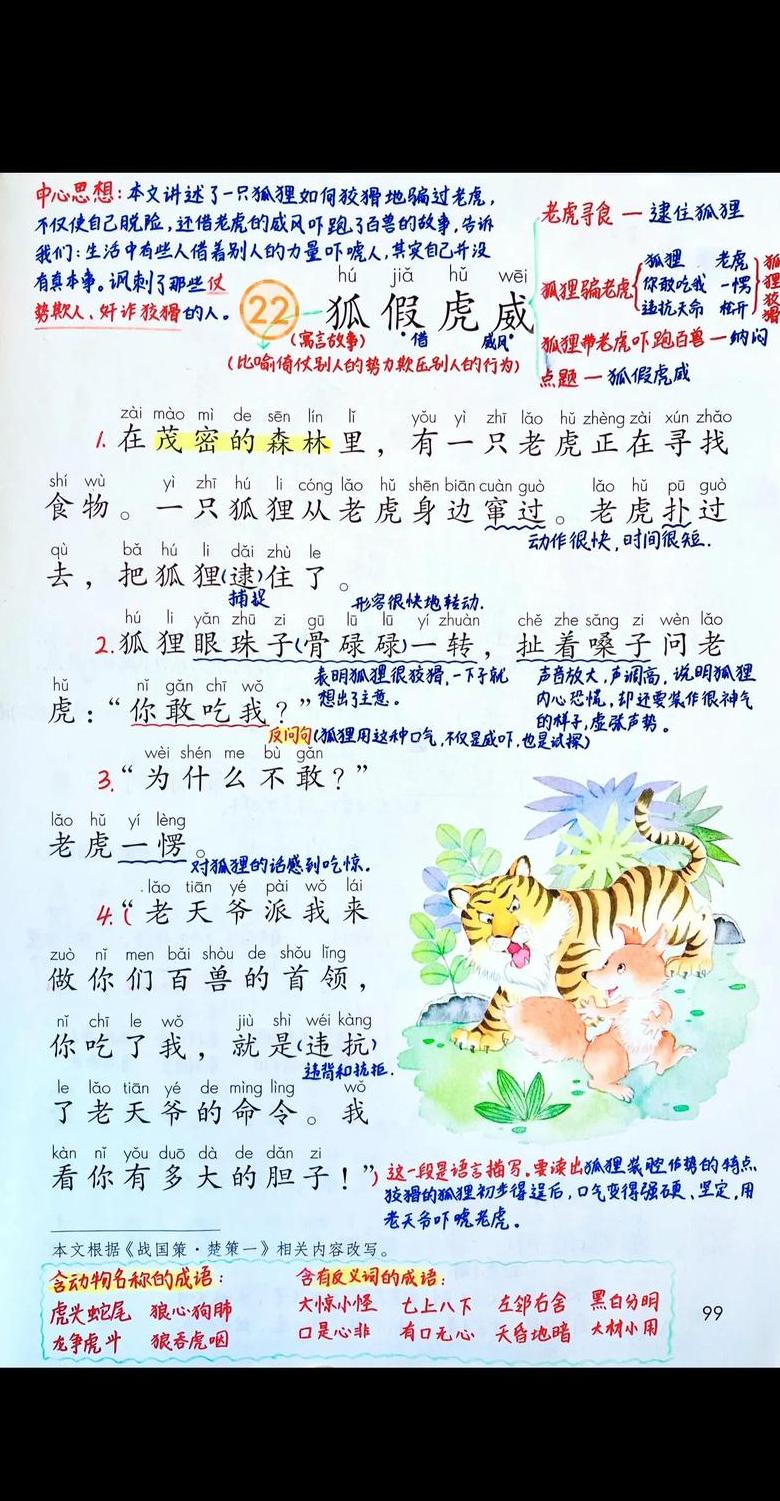 中心思想:本文讲述了一只狐狸如何狡猾地骗过老虎,
不仅使自己脱险,还借老虎的威风吓跑了百兽的故事,告诉
我们:生活中有些人借着别人的力量吓唬人,其实自己并没
有真本事。讽刺了那些仗
势欺人、奸诈狡猾的人。
老虎寻食—逮住狐狸
狐狸骗老虎
狐狸 老虎
你敢吃我 一愣
违抗天命 松开
狐狸狡猾
狐狸带老虎吓跑百兽—纳闷
点题—狐假虎威
hú jiǎ hǔ wēi
22 狐假虎威
(寓言故事) 借 威风
(比喻倚仗别人的势力欺压别人的行为)
zài mào mì de sēn lín lǐ yǒu yì zhī lǎo hǔ zhèng zài xún zhǎo
1.在茂密的森林里,有一只老虎正在寻找
shí wù yì zhī hú li cóng lǎo hǔ shēn biān cuàn guò lǎo hǔ pū guò
食物。一只狐狸从老虎身边窜过。老虎扑过
动作很快,时间很短.
qù bǎ hú li dǎi zhù le
去,把狐狸(逮)住了。
捕捉
形容很快地转动.
hú li yǎn zhū zi gū lū lū yí zhuàn chě zhe sǎng zi wèn lǎo
2.狐狸眼珠子(骨碌碌)一转,扯着嗓子问老
表明狐狸很狡猾,一下子就
想出了主意。
声音放大,声调高,说明狐狸
内心恐慌,却还要装作很神气
的样子,虚张声势。
hǔ nǐ gǎn chī wǒ
虎:“你敢吃我?”
反问句(狐狸用这种口气,不仅是威吓,也是试探)
wèi shén me bù gǎn
3.“为什么不敢?”
lǎo hǔ yí lèng
老虎一愣。
对狐狸的话感到吃惊.
lǎo tiān yé pài wǒ lái
4.(“老天爷派我来
zuò nǐ men bǎi shòu de shǒu lǐng
做你们百兽的首领,
nǐ chī le wǒ jiù shì wéi kàng
你吃了我,就是(违抗)
违背和抗拒.
le lǎo tiān yé de mìng lìng wǒ
了老天爷的命令。我
kàn nǐ yǒu duō dà de dǎn zi
看你有多大的胆子!”)
这一段是语言描写。要读出狐狸装腔作势的特点
狡猾的狐狸初步得逞后,口气变得强硬、坚定,用
老天爷吓唬老虎。
本文根据《战国策·楚策一》相关内容改写。
含动物名称的成语:
虎头蛇尾 狼心狗肺
龙争虎斗 狼吞虎咽
含有反义词的成语:
大惊小怪 七上八下 左邻右舍 黑白分明
口是心非 有口无心 天昏地暗 大材小用
99